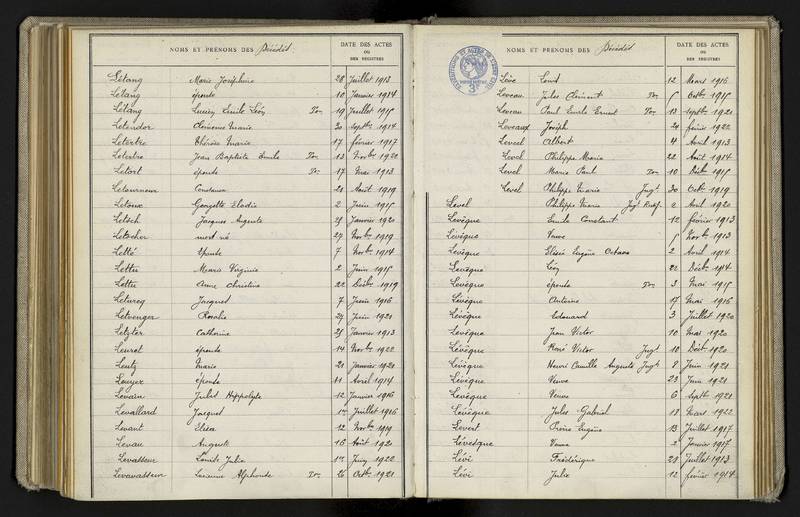 NOMS ET PRÉNOMS DES Décédés
DATE DES ACTES
OU
DES REGISTRES
Létang Marie Joséphine 28 Juillet 1913
Létang épouse 10 Janvier 1914
Létang Lucien Emile Léon Tr. 19 Juillet 1915
Letendor Clémence Marie 30 Septbre 1914
Letertre Thérèse Marie 17 février 1917
Letertre Jean Baptiste Emile Tr. 13 Novbre 1920
Letort épouse Tr. 17 Mai 1913
Letourneur Constance 21 Août 1919
Georgette Elodie 2 Juin 1915
Letsch Jacques Auguste 25 Janvier 1920
Letscher mort né 29 Novbre 1919
Letté épouse 7 Novbre 1914
Lettu Marie Virginie 2 Juin 1915
Lettu Anne Christine 22 Décbre 1919
Leturcq Jacques 7 Juin 1916
Letvenger Rosalie 29 Juin 1921
Letzter Catherine 25 Janvier 1913
Leuret épouse 14 Novbre 1922
Leutz Marie 21 Janvier 1920
épouse 11 Avril 1914
Levain Jules Hippolyte 12 Janvier 1916
Levallard Jacques Juillet 1916
Levant Elisa 12 Novbre 1919
Levau Auguste 16 Août 1921
Levasseur Louise Julie Juin 1922
Levavasseur Lucienne Alphonse Tr. 26 Octbre 1921
NOMS ET PRÉNOMS DES Décédés
DATE DES ACTES
OU
DES REGISTRES
3F
Lève Louis 12 Mars 1916
Leveau Jules Clément Tr. 5 Octbre 1915
Leveau Paul Emile Ernest Tr. 13 Septbre 1921
Leveaux Joseph 24 février 1922
Levecel Albert 4 Avril 1913
Level Philippe Marie 22 Août 1914
Level Marie Paul Tr. 10 Décbre 1915
Level Philippe Marie Jugt 30 Octbre 1919
Level Philippe Marie Jugt Rectif. 2 Avril 1920
Levêque Emile Constant 12 février 1913
Levêque Veuve 5 Novbre 1913
Levêque Elisée Eugène Octave 2 Avril 1914
Levêque Léon 22 Décbre 1914
Levêque épouse Tr. 3 Mai 1915
Levêque Antoine 17 Mai 1916
Levêque Edouard 3 Juillet 1920
Levêque Jean Victor 10 Mai 1920
Levêque René Victor Jugt 10 Décbre 1920
Levêque Henri Camille Auguste Jugt 8 Juin 1921
Levêque Veuve 23 Juin 1921
Levêque Veuve 6 Septbre 1921
Levêque Jules Gabriel 18 Mars 1922
Levert Eugène 13 Juillet 1917
Levesque Veuve 2 Janvier 1917
Lévi Frédérique 21 Juillet 1913
Lévi Julie 12 février 1914